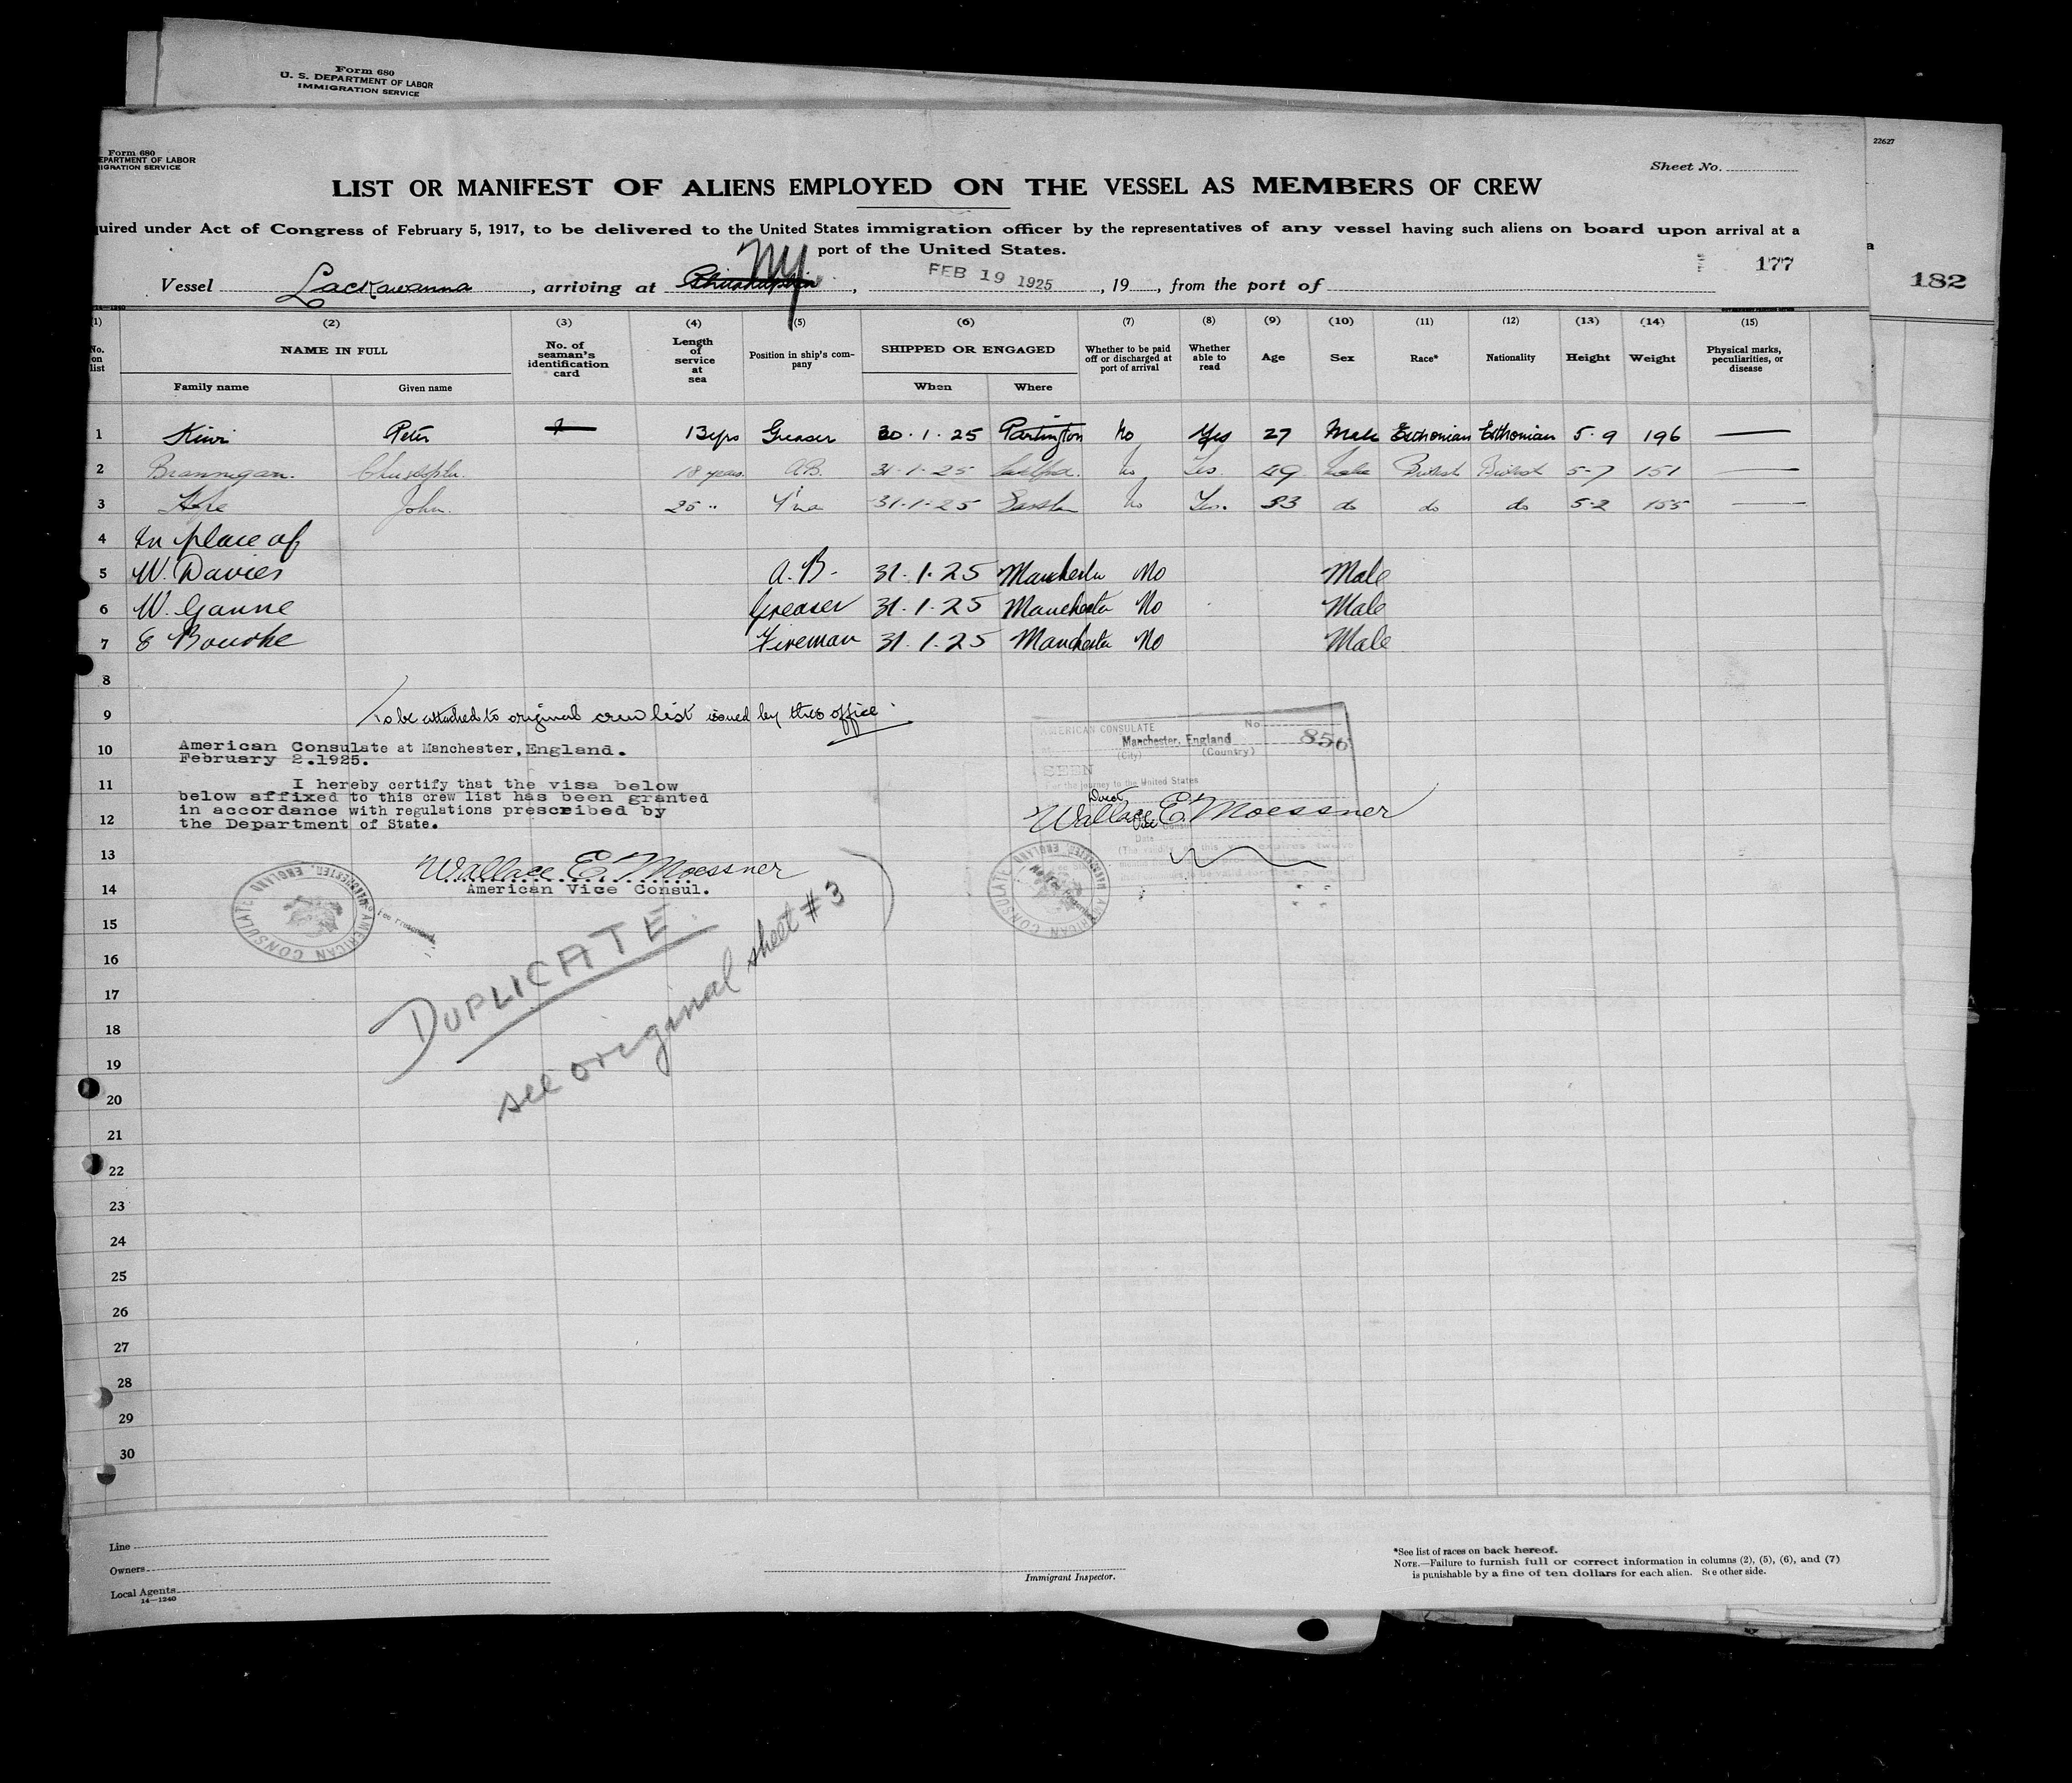 Form 680
U. S. DEPARTMENT OF LABOR
IMMIGRATION SERVICE
22627
Form 680
EPARTMENT OF LABOR
IGRATION SERVICE
Sheet No.
LIST OR MANIFEST OF ALIENS EMPLOYED ON THE VESSEL AS MEMBERS OF CREW
uired under Act of Congress of February 5, 1917, to be delivered to the United States immigration officer by the representatives of any vessel having such aliens on board upon arrival at a
port of the United States.
177
182
Vessel Lackawanna, arriving at Philadelphia NY, FEB 19 1925, 19, from the port of
(1) (2) (3) (4) (5) (6) (7) (8) (9) (10) (11) (12) (13) (14) (15)
No. on list NAME IN FULL No. of seaman's identification card Length of service at sea Position in ship's company SHIPPED OR ENGAGED Whether to be paid off or discharged at port of arrival Whether able to read Age Sex Race* Nationality Height Weight Physical marks, peculiarities, or disease
Family name Given name When Where
1 Kiwi Peter 13 yrs Greaser 30.1.25 Partington No Yes 27 Male Esthonian Esthonian 5.9 196 —
2 Brannigan. Christopher. 18 years. A.B. 31-1-25 Salford. No Yes. 49 Male British British 5-7 151 —
3 John. 25 " 31-1-25 No Yes. 33 do do do 5-2 155 —
4 In place of
5 W. Davies A.B- 31.1.25 Manchester No Male
6 W. Gaune Greaser 31.1.25 Manchester No Male
7 E Bourke Fireman 31.1.25 Manchester No Male
8
9 To be attached to original crew list issued by this office.
10 American Consulate at Manchester, England.
February 2.1925.
11 I hereby certify that the visa below
below affixed to this crew list has been granted
in accordance with regulations prescribed by
12 the Department of State.
13 Wallace E. Moessner
14 American Vice Consul.
AMERICAN CONSULATE No. 856
Manchester, England
(City) (Country)
SEEN
For the journey to the United States
Wallace E. Moessner
Vice Consul
Date
AMERICAN CONSULATE MANCHESTER, ENGLAND.
No Fee Prescribed
AMERICAN CONSULATE MANCHESTER, ENGLAND.
No Fee Prescribed
DUPLICATE
see original sheet #3
15
16
17
18
19
20
21
22
23
24
25
26
27
28
29
30
Line
Owners
Local Agents
14—1240
Immigrant Inspector.
*See list of races on back hereof.
NOTE.—Failure to furnish full or correct information in columns (2), (5), (6), and (7)
is punishable by a fine of ten dollars for each alien. See other side.